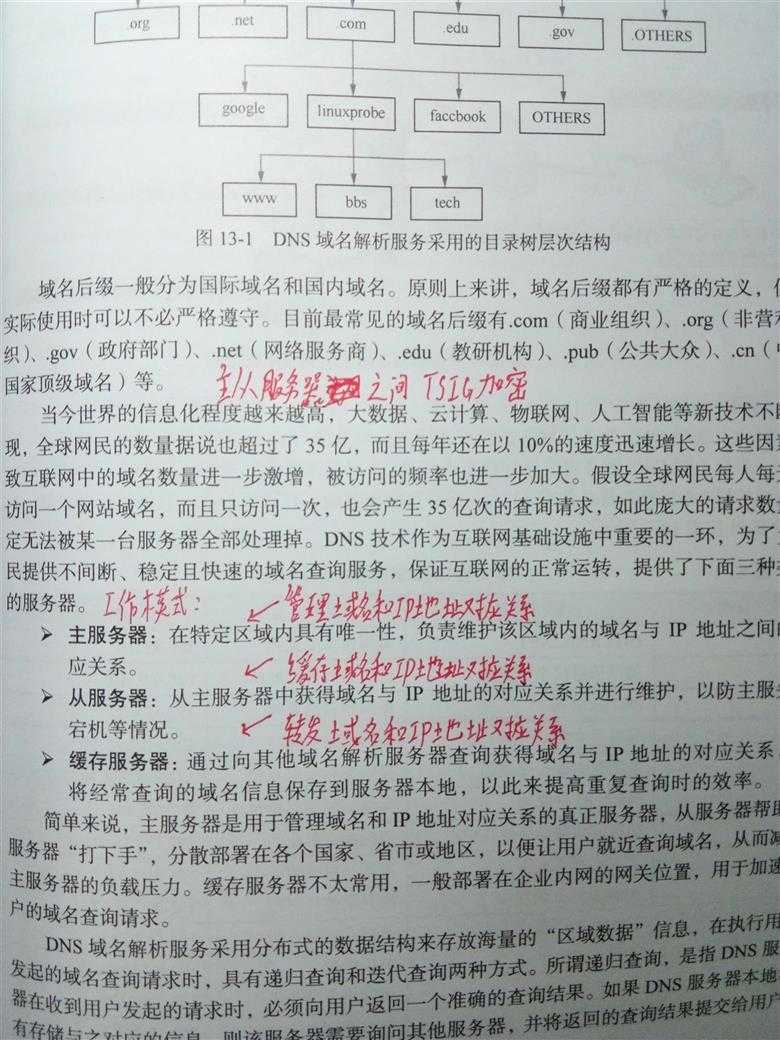 .org .net .com .edu .gov .OTHERS
google linuxprobe faccbook OTHERS
www bbs tech
图 13-1 DNS 域名解析服务采用的目录树层次结构
域名后缀一般分为国际域名和国内域名。原则上来讲，域名后缀都有严格的定义，
实际使用时可以不必严格遵守。目前最常见的域名后缀有.com（商业组织）、.org（非营
织）、.gov（政府部门）、.net（网络服务商）、.edu（教研机构）、.pub（公共大众）、.cn（
国家顶级域名）等。
主/从服务器 之间 TSIG加密
当今世界的信息化程度越来越高，大数据、云计算、物联网、人工智能等新技术不
现，全球网民的数量据说也超过了 35 亿，而且每年还在以 10%的速度迅速增长。这些因
致互联网中的域名数量进一步激增，被访问的频率也进一步加大。假设全球网民每人每
访问一个网站域名，而且只访问一次，也会产生 35 亿次的查询请求，如此庞大的请求数
定无法被某一台服务器全部处理掉。DNS 技术作为互联网基础设施中重要的一环，为了
民提供不间断、稳定且快速的域名查询服务，保证互联网的正常运转，提供了下面三种
的服务器。 工作模式：
↙ 管理域名和IP地址对应关系
➢ 主服务器：在特定区域内具有唯一性，负责维护该区域内的域名与 IP 地址之间
应关系。
↙ 缓存域名和IP地址对应关系
➢ 从服务器：从主服务器中获得域名与 IP 地址的对应关系并进行维护，以防主服
宕机等情况。
↙ 转发域名和IP地址对应关系
➢ 缓存服务器：通过向其他域名解析服务器查询获得域名与 IP 地址的对应关系，
将经常查询的域名信息保存到服务器本地，以此来提高重复查询时的效率。
简单来说，主服务器是用于管理域名和 IP 地址对应关系的真正服务器，从服务器帮助
服务器“打下手”，分散部署在各个国家、省市或地区，以便让用户就近查询域名，从而减
主服务器的负载压力。缓存服务器不太常用，一般部署在企业内网的网关位置，用于加速
户的域名查询请求。
DNS 域名解析服务采用分布式的数据结构来存放海量的“区域数据”信息，在执行用
发起的域名查询请求时，具有递归查询和迭代查询两种方式。所谓递归查询，是指 DNS 服
器在收到用户发起的请求时，必须向用户返回一个准确的查询结果。如果 DNS 服务器本地
有存储与之对应的信息，则该服务器需要询问其他服务器，并将返回的查询结果提交给用户